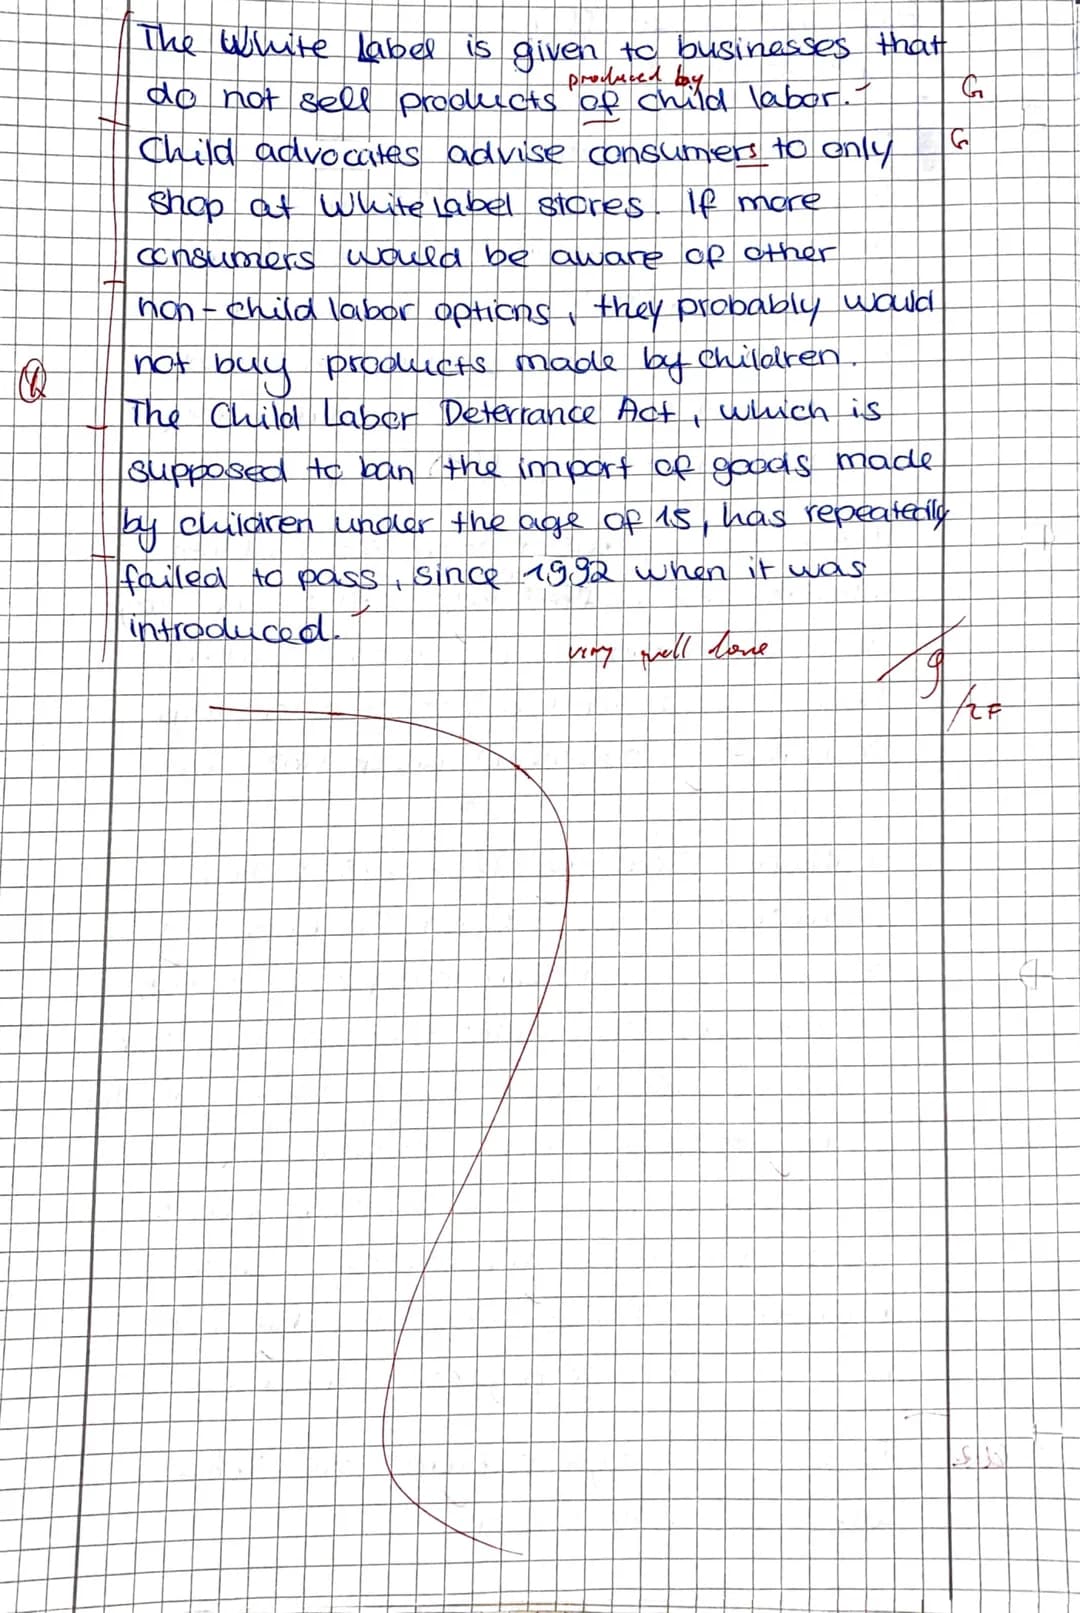 The White Label is given to businesses that
produced by
do not sell products of child labor. G
Child advocates advise consumers to only G
shop at White Label stores. If more
consumers would be aware of other
non-child labor options, they probably would
not buy products made by children.
The Child Labor Deterrance Act, which is
supposed to ban the import of goods made
by children under the age of 15, has repeatedly
failed to pass, since 1992 when it was
introduced.
very well done